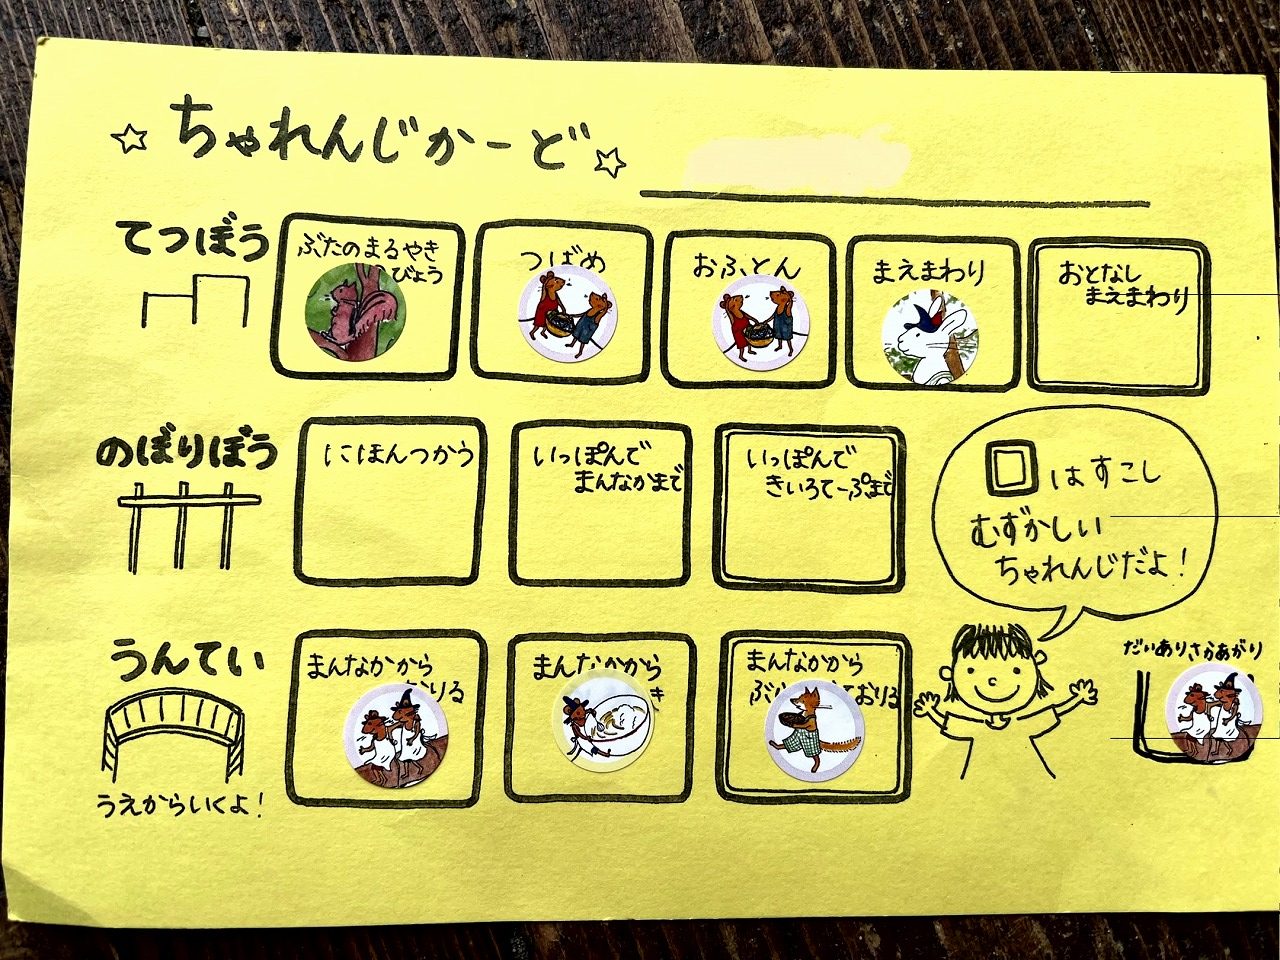 ☆ちゃれんじかーど☆
てつぼう
ぶたのまるやき
びょう
つばめ
おふとん
まえまわり
おとなし
まえまわり
のぼりぼう
にほんつかう
いっぽんで
まんなかまで
いっぽんで
きいろてーぷまで
□はすこし
むずかしい
ちゃれんじだよ!
うんてい
うえからいくよ!
まんなかから
おりる
まんなかから
き
まんなかから
おりる
だいありさかあがり